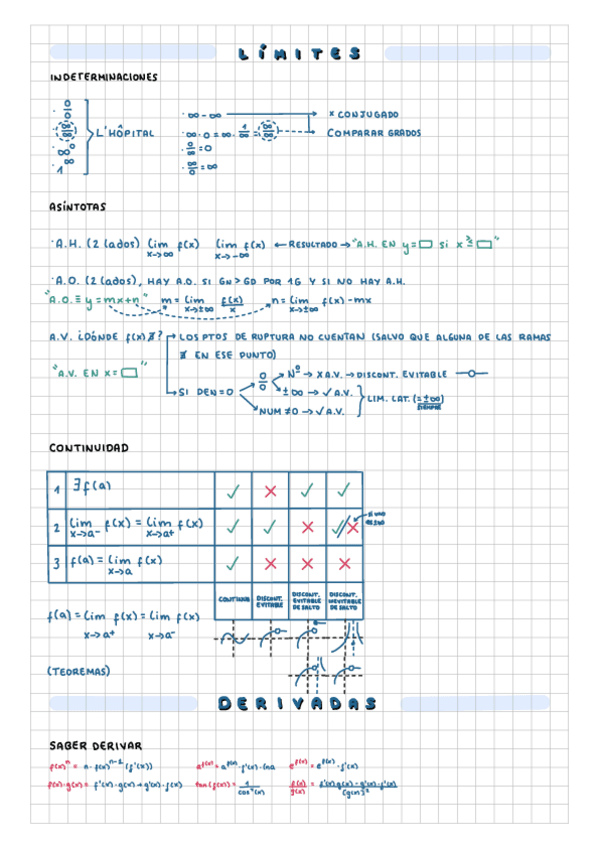 LÍMITES
INDETERMINACIONES
· 0/0
· ∞/∞
· ∞⁰
· 1^∞
L'HÔPITAL
· ∞-∞ → x CONJUGADO
· ∞·0 = ∞· 1/∞ = ∞/∞ → COMPARAR GRADOS
· 0/∞ = 0
· ∞/0 = ∞
ASÍNTOTAS
· A.H. (2 lados) lim x→∞ f(x) lim x→-∞ f(x) ← RESULTADO → "A.H. EN y=□ si x→ □"
· A.O. (2 lados), HAY A.O. SI GN>GD POR 1G Y SI NO HAY A.H.
"A.O. ≡ y=mx+n" m= lim x→±∞ f(x)/x n= lim x→±∞ f(x)-mx
A.V. ¿DÓNDE f(x) ∄? → LOS PTOS DE RUPTURA NO CUENTAN (SALVO QUE ALGUNA DE LAS RAMAS
∄ EN ESE PUNTO)
"A.V. EN x=□"
→ SI DEN=0
0/0 → Nº → X A.V. → DISCONT. EVITABLE
±∞ → ✓ A.V.
NUM ≠0 → ✓ A.V.
LIM. LAT. (=±∞)
SIEMPRE
CONTINUIDAD
1 ∃f(a) ✓ ✗ ✓ ✓
2 lim x→a⁻ f(x) = lim x→a⁺ f(x) ✓ ✓ ✗ ✓/✗
3 f(a) = lim x→a f(x) ✓ ✗ ✗ ✗
CONTINUA DISCONT. EVITABLE DISCONT. EVITABLE DE SALTO DISCONT. INEVITABLE DE SALTO
f(a) = lim x→a⁺ f(x) = lim x→a⁻ f(x)
(TEOREMAS)
DERIVADAS
SABER DERIVAR
f(x)ⁿ = n·f(x)ⁿ⁻¹·(f'(x)) a^f(x) = a^f(x)·f'(x)·lna e^f(x) = e^f(x)·f'(x)
f(x)·g(x) = f'(x)·g(x)+g'(x)·f(x) tan(f(x)) = 1/cos²(x) f(x)/g(x) =